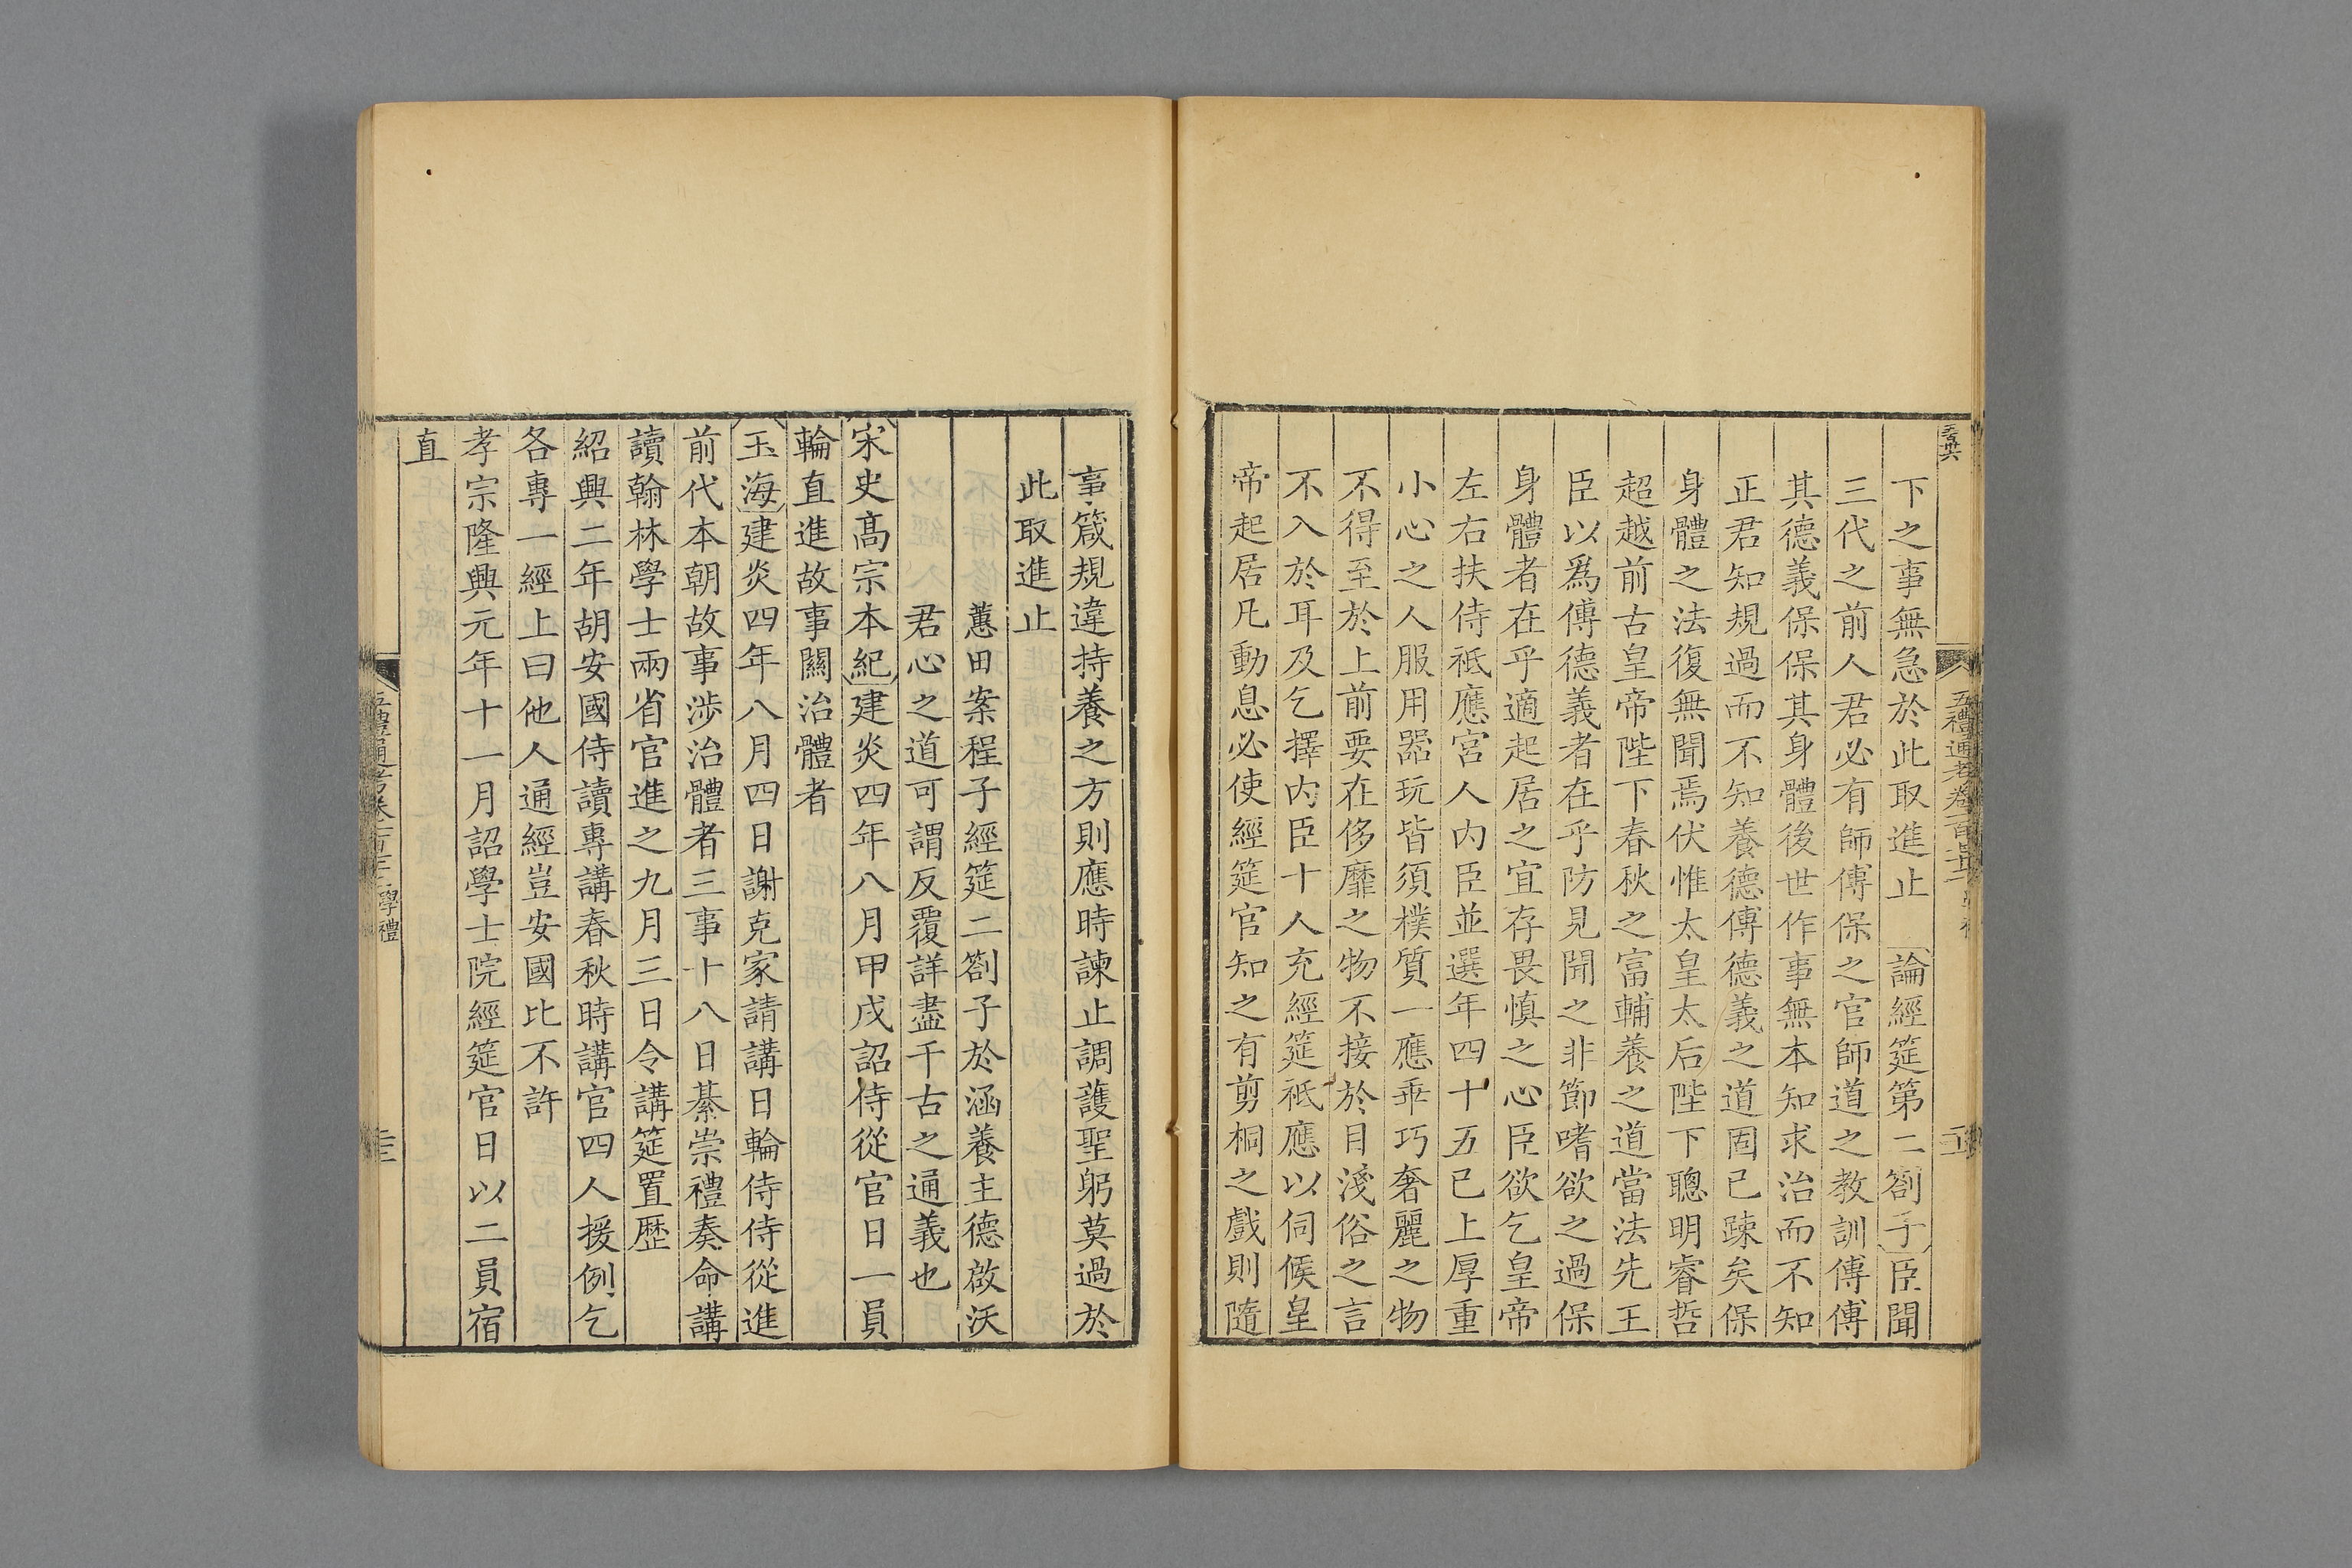 下之事無急於此取進止　論經筵第二劄子臣聞
三代之前人君必有師傅保之官師道之教訓傅傅
其德義保保其身體後世作事無本知求治而不知
正君知規過而不知養德傅德義之道固已踈矣保
身體之法復無聞焉伏惟太皇太后陛下聰明睿哲
超越前古皇帝陛下春秋之富輔養之道當法先王
臣以爲傅德義者在乎防見聞之非節嗜欲之過保
身體者在乎適起居之宜存畏慎之心臣欲乞皇帝
左右扶侍祗應宮人内臣並選年四十五已上厚重
小心之人服用器玩皆須樸質一應華巧奢麗之物
不得至於上前要在侈靡之物不接於目淺俗之言
不入於耳及乞擇内臣十人充經筵祗應以伺候皇
帝起居凡動息必使經筵官知之有剪桐之戲則隨
事箴規違持養之方則應時諫止調護聖躬莫過於
此取進止
蕙田案程子經筵二劄子於涵養主德啟沃
君心之道可謂反覆詳盡千古之通義也
宋史高宗本紀建炎四年八月甲戌詔侍從官日一員
輪直進故事關治體者
玉海建炎四年八月四日謝克家請講日輪侍侍從進
前代本朝故事涉治體者三事十八日綦崇禮奏命講
讀翰林學士兩省官進之九月三日令講筵置歴
紹興二年胡安國侍讀專講春秋時講官四人援例乞
各專一經上曰他人通經豈安國比不許
孝宗隆興元年十一月詔學士院經筵官日以二員宿
直
學禮